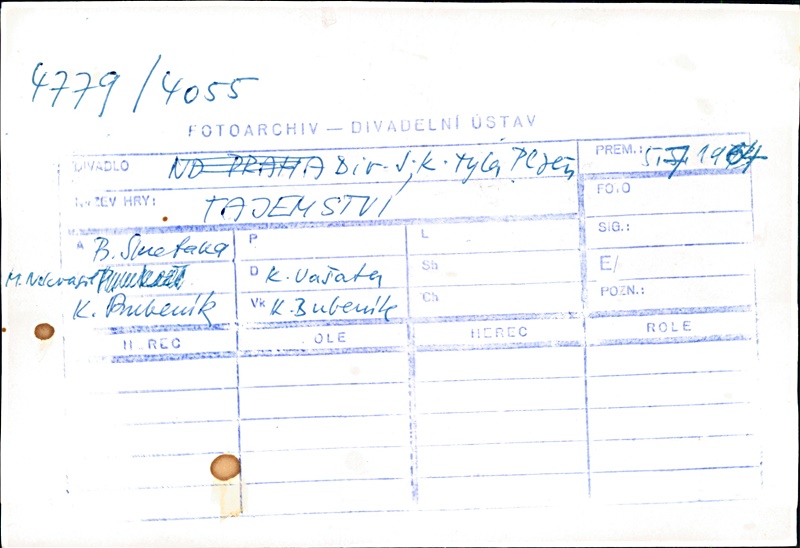 4779/4055
FOTOARCHIV — DIVADELNÍ ÚSTAV
DIVADLO ND PRAHA Div. J. K. Tyla Plzeň PREM.:
NÁZEV HRY: TAJEMSTVÍ FOTO
A B. Smetana P L SIG.:
D K. Vašata Sh E/
K. Bubeník Vk K. Bubeník Ch POZN.:
HEREC ROLE HEREC ROLE